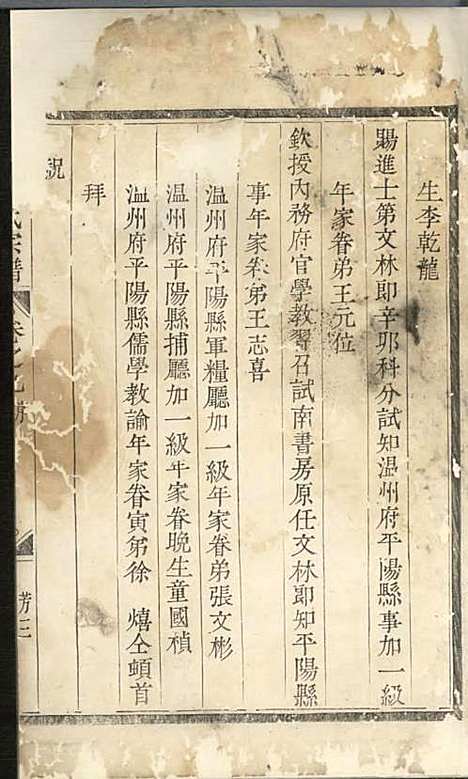 生李乾龍
賜進士第文林郎辛卯科分試知温州府平陽縣事加一級
年家眷弟王元位
欽授內務府官學教習召試南書房原任文林郎知平陽縣
事年家眷弟王志喜
温州府平陽縣軍糧廳加一級年家眷弟張文彬
温州府平陽縣捕廳加一級年家眷晚生童國楨
温州府平陽縣儒學教諭年家眷寅弟徐 熺仝頓首
拜
祝
氏宗譜 卷之
三